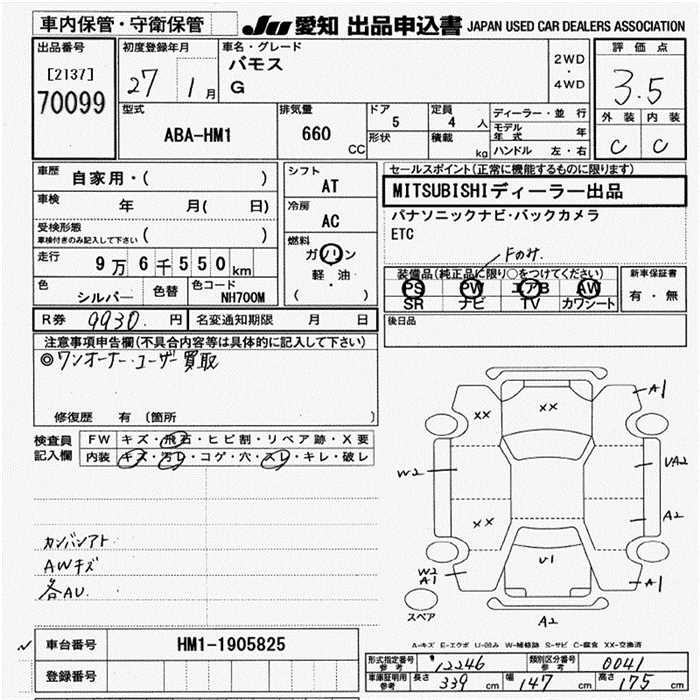 車内保管・守衛保管
JU 愛知 出品申込書 JAPAN USED CAR DEALERS ASSOCIATION
出品番号
[2137]
70099
初度登録年月
27 1月
車名・グレード
バモス
G
2WD
・
4WD
評価点
3.5
外装 内装
C C
型式
ABA-HM1
排気量
660
CC
ドア 5
形状
定員 4 人
積載 kg
ディーラー・並行
モデル年式 年
ハンドル 左・右
車歴
自家用・( )
車検
年 月( 日)
受検形態
車検付きのみ記入して下さい ( )
走行 9万6千550km
色 シルバー 色替
色コード NH700M
シフト
AT
冷房
AC
燃料
ガソリン
軽・油
( )
セールスポイント(正常に機能するものに限ります)
MITSUBISHIディーラー出品
パナソニックナビ・バックカメラ
ETC
Fのみ.
装備品(純正品に限り○をつけてください)
PS PW エアB AW
SR ナビ TV カワシート
新車保証書
有・無
R券 9930. 円 名変通知期限 月 日
後日品
注意事項申告欄(不具合内容等は具体的に記入して下さい)
◎ワンオーナー・ユーザー買取
修復歴 有 (箇所 )
検査員記入欄
FW キズ・飛石・ヒビ割・リペア跡・X要
内装 キズ・汚レ・コゲ・穴・スレ・キレ・破レ
カンバンアト
AWキズ
各AU.
XX XX A1
W2 UA2
XX A2
W2 A1 U1 A1
スペア
A2
A-キズ E-エクボ U-凹み W-補修跡 S-サビ C-腐食 XX-交換済
車台番号 HM1-1905825
登録番号
形式指定番号 参考 12246 類別区分番号 参考 0041
車庫証明用 参考 長さ 339 cm 幅 147 cm 高さ 175 cm